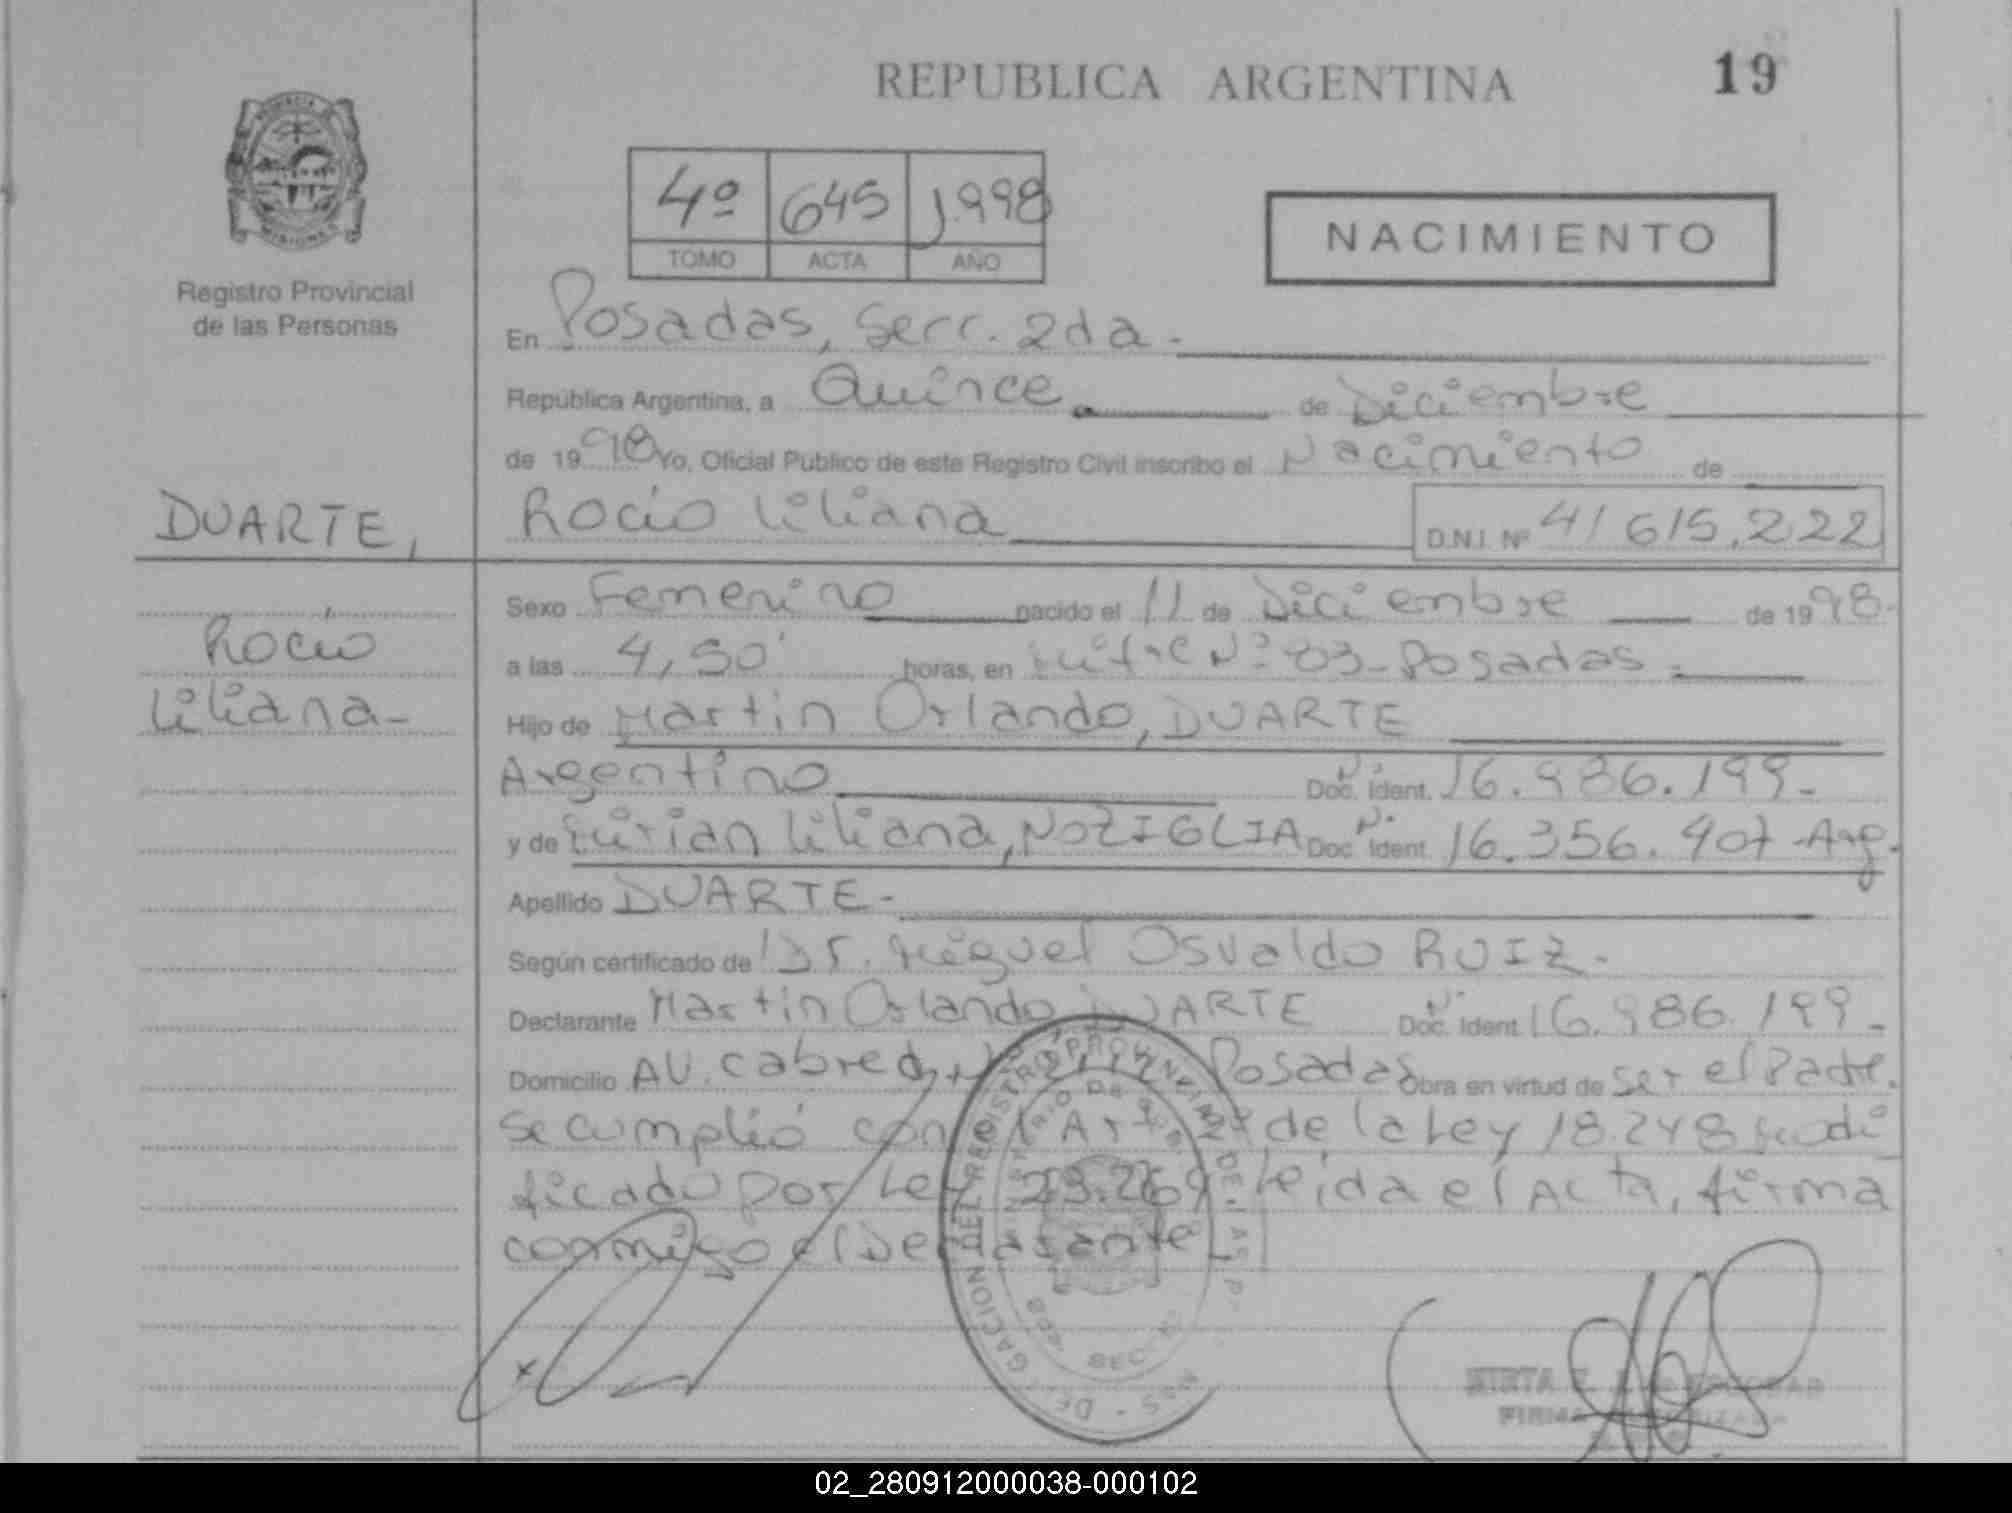 REPUBLICA ARGENTINA
19
4º 645 1998
TOMO ACTA AÑO
NACIMIENTO
MISIONES
Registro Provincial
de las Personas
En Posadas, Secc. 2da.
República Argentina, a Quince de Diciembre
de 1998 Yo, Oficial Público de este Registro Civil inscribo el Nacimiento de
DUARTE, Rocio Liliana D.N.I. Nº 41 615.222
Sexo Femenino nacido el 11 de Diciembre de 1998.
Rocio
a las 4,50' horas, en Nº 03 - Posadas
Liliana-
Hijo de Martin Orlando, DUARTE
Argentino Doc. Ident. Nº 16.986.199-
y de Mirian Liliana, NOZIGLIA Doc. Ident. Nº 16.356.907 - Arg.
Apellido DUARTE-
Según certificado de Dr. Miguel Osvaldo RUIZ.
Declarante Martin Orlando DUARTE Doc. Ident. Nº 16.986.199-
Domicilio AV. Cabred Posadas Obra en virtud de ser el Padre.
Se cumplió con el Art. de la Ley 18.248 modi
ficado por Ley 23.264 Leida el Acta, firma
conmigo el Declarante
MIRTA
FIRMA AUTORIZADA
02_280912000038-000102